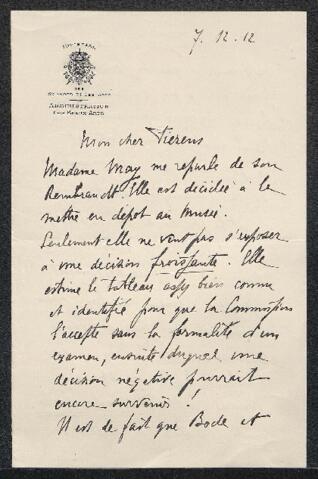 7.12.12
MINISTÈRE
DES
SCIENCES ET DES ARTS
ADMINISTRATION
DES BEAUX-ARTS
Mon cher Fierens
Madame May me reparle de son
Rembrandt. Elle est décidée à le
mettre en dépot au musée.
Seulement elle ne veut pas s'exposer
à une décision froissante. Elle
estime le tableau assez bien connu
et identifié pour que la Commission
l'accepte sans la formalité d'un
examen, ensuite duquel une
décision négative pourrait
encore survenir !
Il est de fait que Bode et